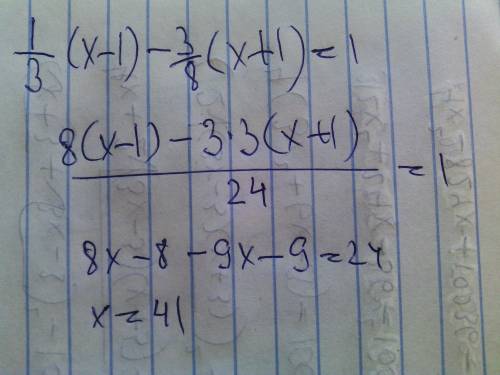 1/3 (x-1) - 3/8 (x+1) = 1
8(x-1) - 3·3(x+1) / 24 = 1
8x - 8 - 9x - 9 = 24
x = 41